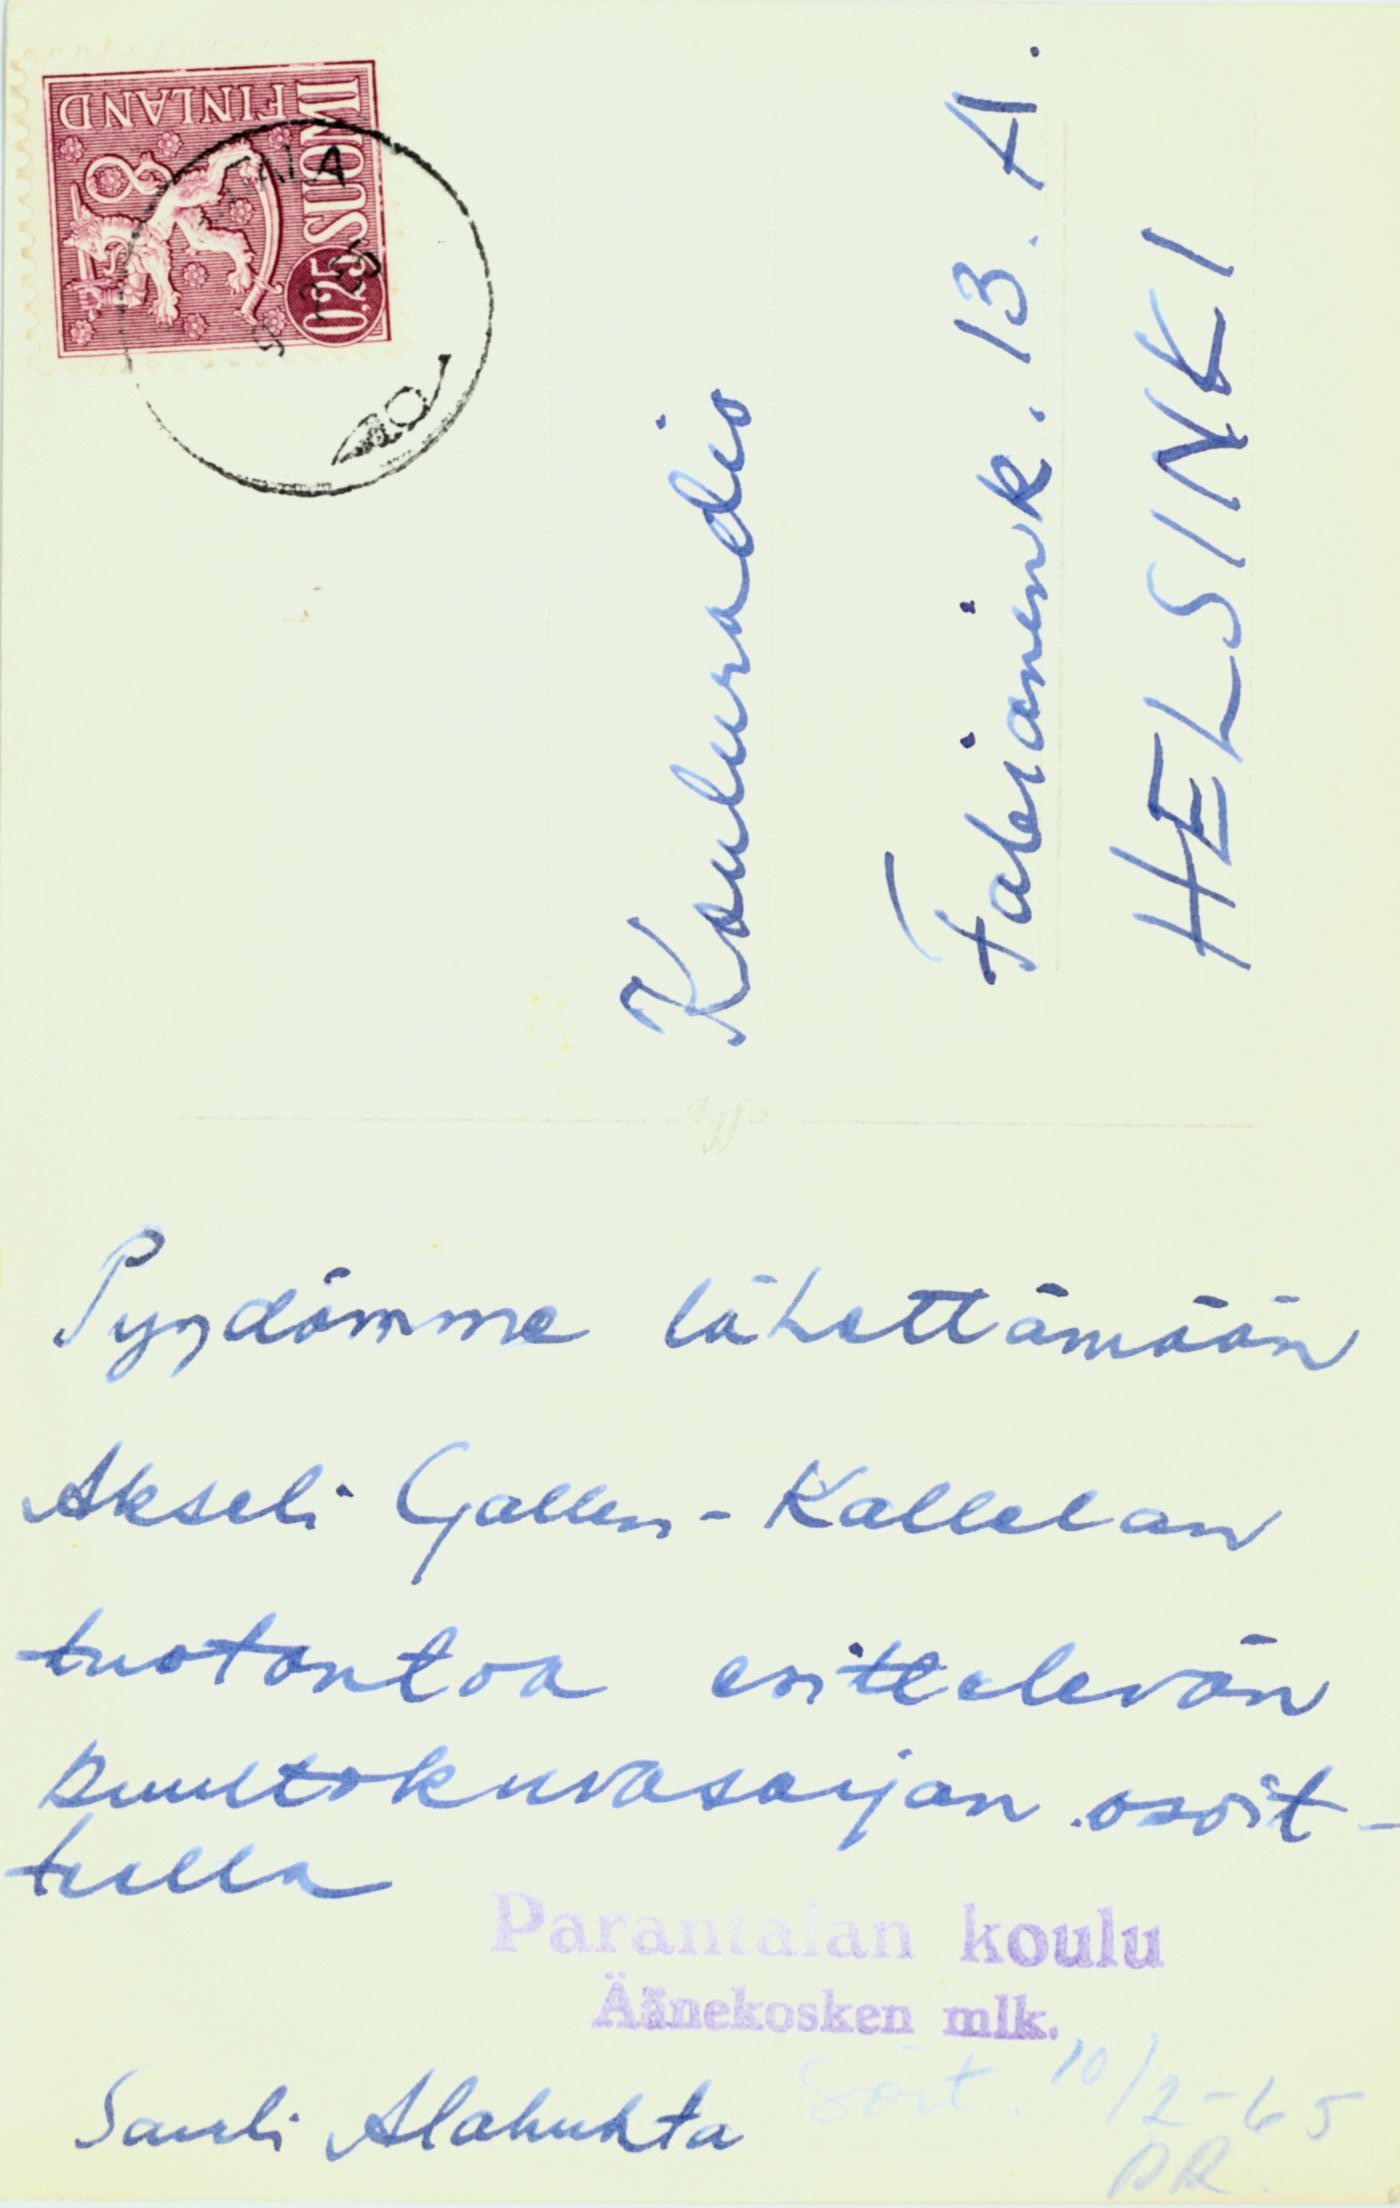 SUOMI
FINLAND
0.25
Kouluradio
Fabianink. 13. A.
HELSINKI
Agfa
Pyydämme lähettämään
Akseli Gallen-Kallelan
tuotantoa esittelevän
kuultokuvasarjan osoit-
teella
Parantalan koulu
Äänekosken mlk.
Sauli Alahuhta
Soit. 10/2-65